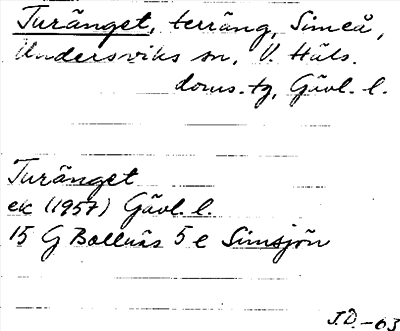 Turänget, terräng, Simeå,
Undersviks sn, V. Häls.
doms.tg, Gävl. l.
Turänget
ek (1957) Gävl. l.
15 G Bollnäs 5 e Simsjön
J.D. -63